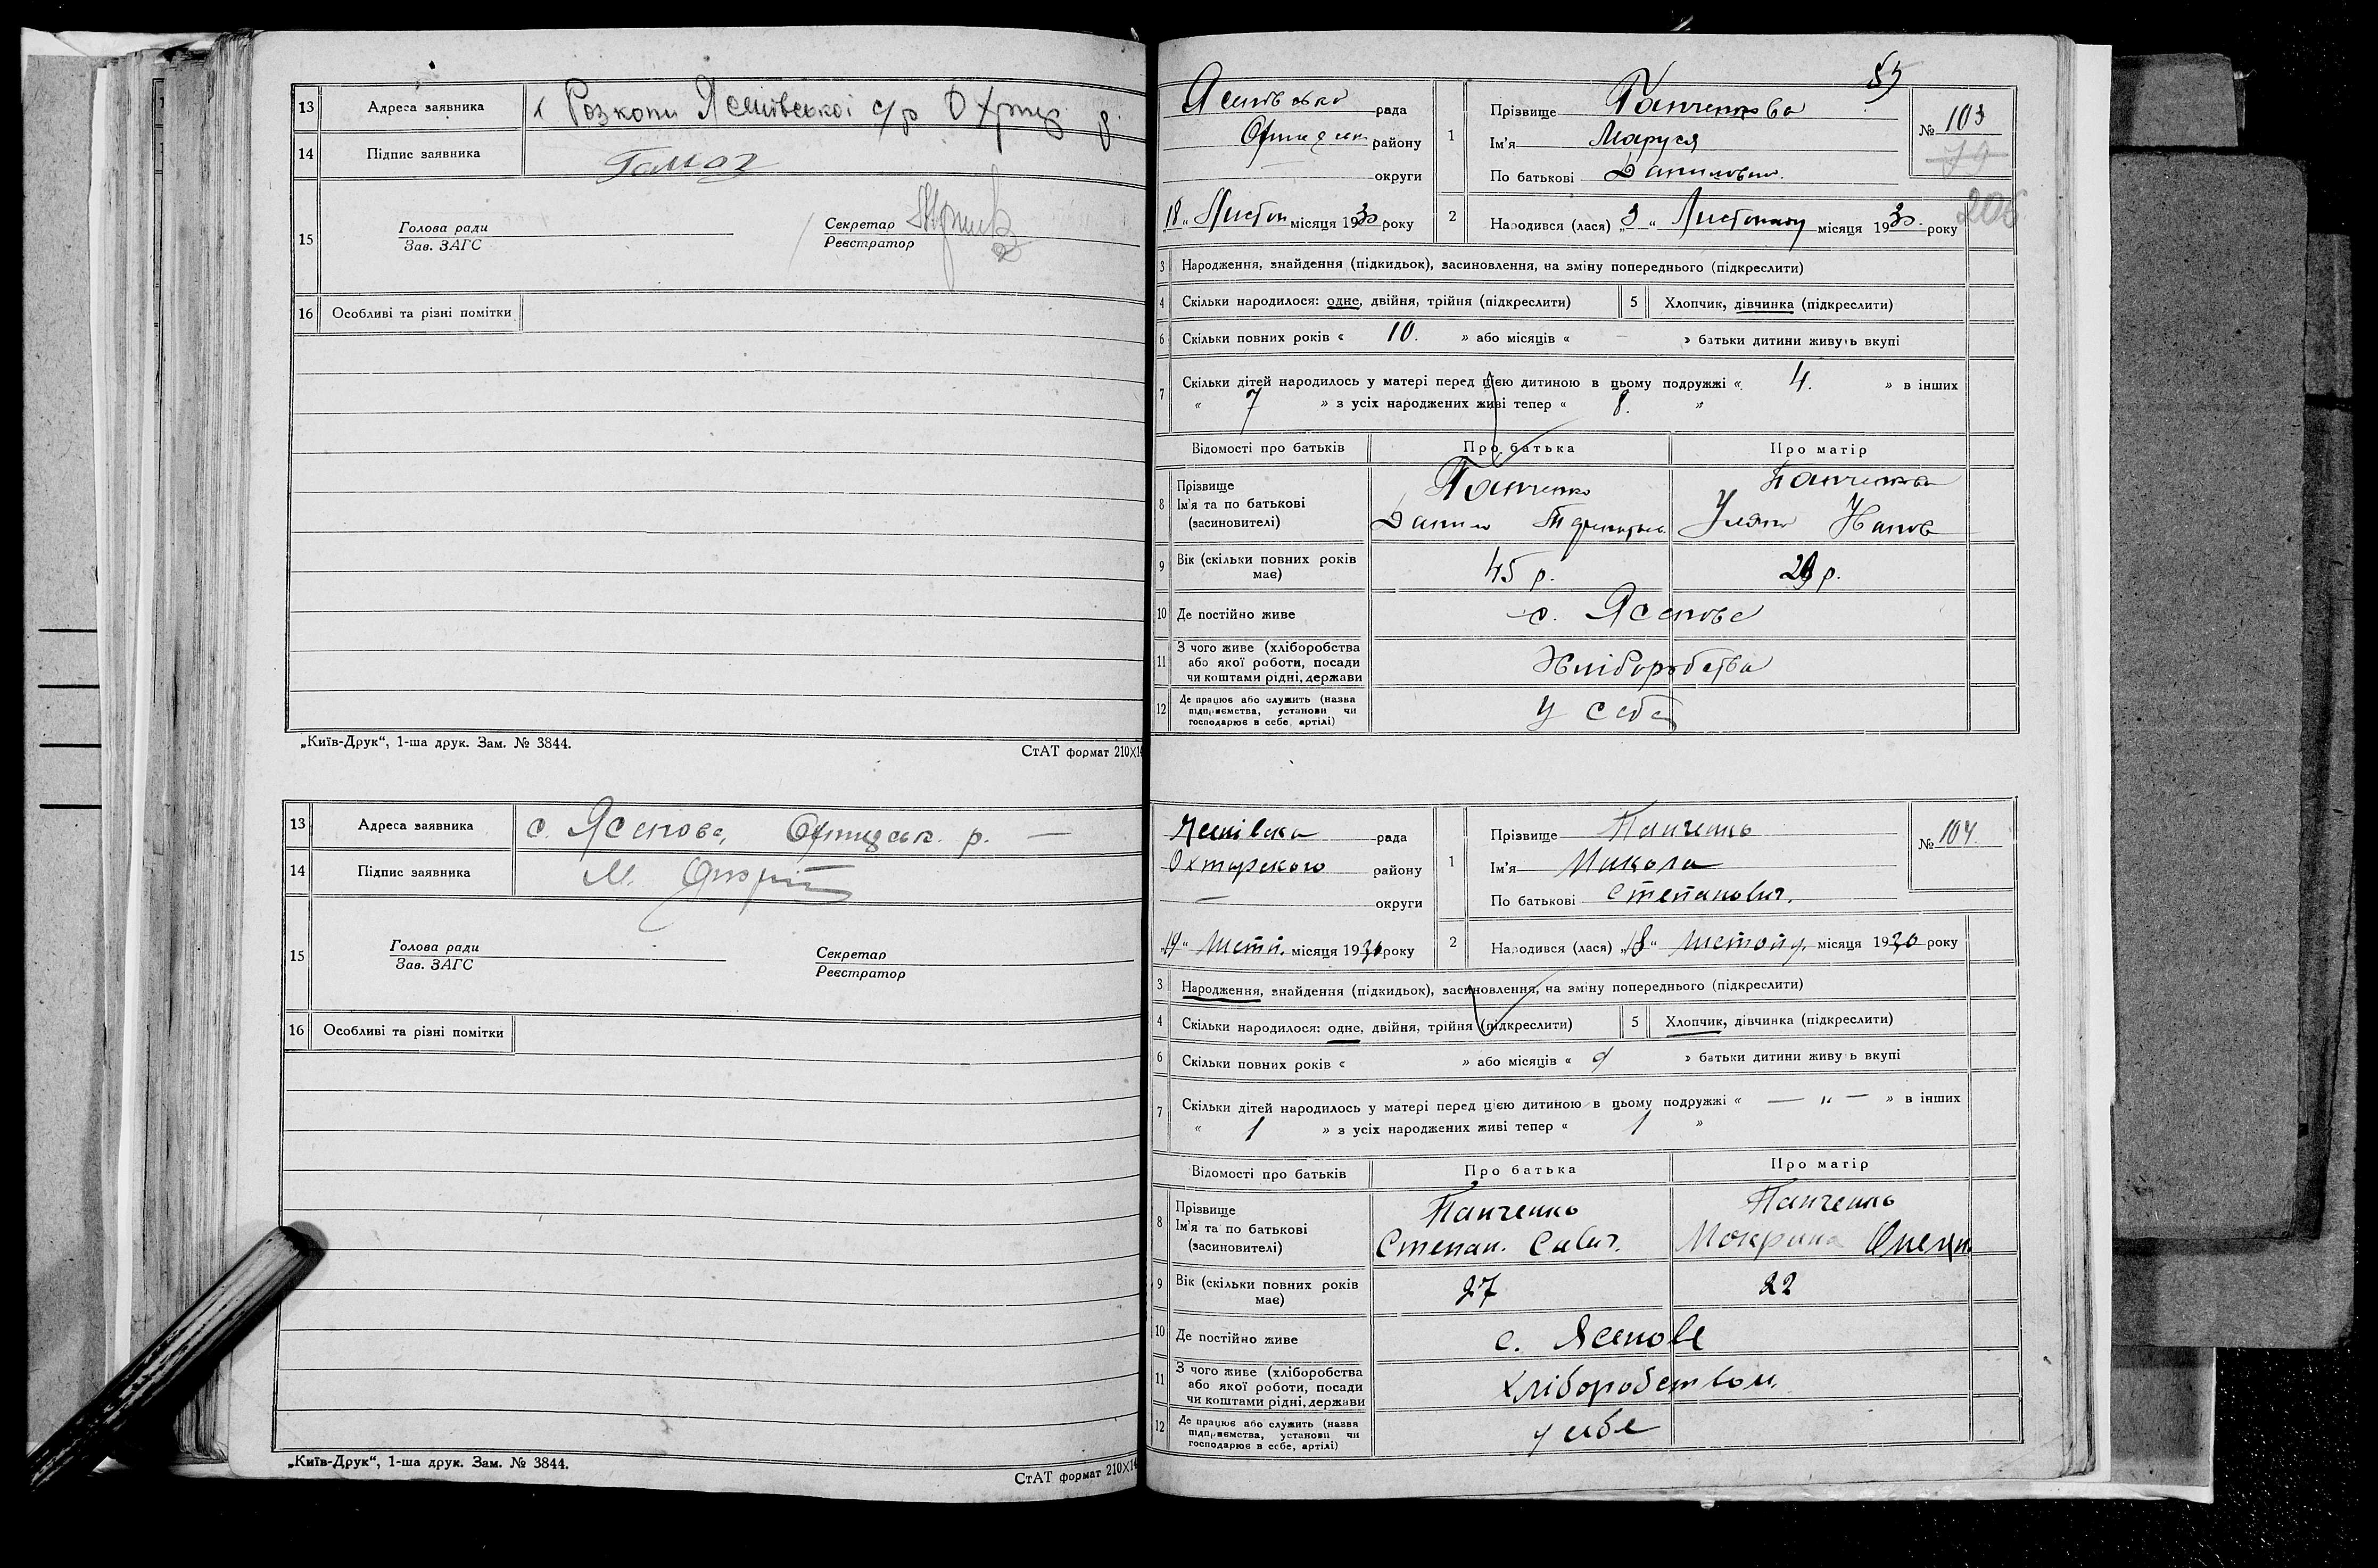 13 Адреса заявника х Розкопи Ясенівської с/р Охтир р.
14 Підпис заявника
15 Голова ради
Зав. ЗАГС
Секретар
Реєстратор
16 Особливі та різні помітки
„Київ-Друк“, 1-ша друк. Зам. № 3844.
СтАТ формат 210×14
13 Адреса заявника с. Ясенове, Охтирськ. р. —
14 Підпис заявника М.
15 Голова ради
Зав. ЗАГС
Секретар
Реєстратор
16 Особливі та різні помітки
„Київ-Друк“, 1-ша друк. Зам. № 3844.
СтАТ формат 210×14
85
Ясенівська рада
району
округи
18 „ Листоп місяця 1930 року
1 Прізвище Панченкова
Ім'я Маруся
По батькові Даниловна.
№ 103
79
206
2 Народився (лася) „ 9 “ Листопаду місяця 1930. року
3 Народження, знайдення (підкидьок), засиновлення, на зміну попереднього (підкреслити)
4 Скільки народилося: одне, двійня, трійня (підкреслити) 5 Хлопчик, дівчинка (підкреслити)
6 Скільки повних років « 10. » або місяців « — » батьки дитини живуть вкупі
7 Скільки дітей народилось у матері перед цією дитиною в цьому подружжі « 4. » в інших
« 7 » з усіх народжених живі тепер « 8. »
Відомості про батьків Про батька Про матір
8 Прізвище Панченко Панченкова
Ім'я та по батькові Данило Уляна Іванов
(засиновителі)
9 Вік (скільки повних років має) 45 р. 29 р.
10 Де постійно живе с. Ясенове
11 З чого живе (хліборобства або якої роботи, посади чи коштами рідні, держави Хліборобства
12 Де працює або служить (назва підприємства, установи чи господарює в себе, артілі) У себе
Ясенівська рада
Охтирського району
— округи
„19 “ листп. місяця 1930 року
1 Прізвище Панченко
Ім'я Микола
По батькові Степанович.
№ 104.
2 Народився (лася) „18 “ листопду. місяця 1930 року
3 Народження, знайдення (підкидьок), засиновлення, на зміну попереднього (підкреслити)
4 Скільки народилося: одне, двійня, трійня (підкреслити) 5 Хлопчик, дівчинка (підкреслити)
6 Скільки повних років « » або місяців « 9 » батьки дитини живуть вкупі
7 Скільки дітей народилось у матері перед цією дитиною в цьому подружжі « — „ — » в інших
« 1 » з усіх народжених живі тепер « 1 »
Відомості про батьків Про батька Про матір
8 Прізвище Панченко Панченко
Ім'я та по батькові Степан. Савич. Мокрина
(засиновителі)
9 Вік (скільки повних років має) 27 22
10 Де постійно живе с. Ясенове
11 З чого живе (хліборобства або якої роботи, посади чи коштами рідні, держави хліборобством.
12 Де працює або служить (назва підприємства, установи чи господарює в себе, артілі) у себе